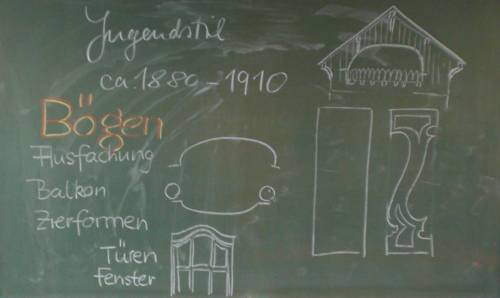 Jugendstil
ca. 1880 - 1910
Bögen
Ausfachung
Balkon
Zierformen
Türen
Fenster